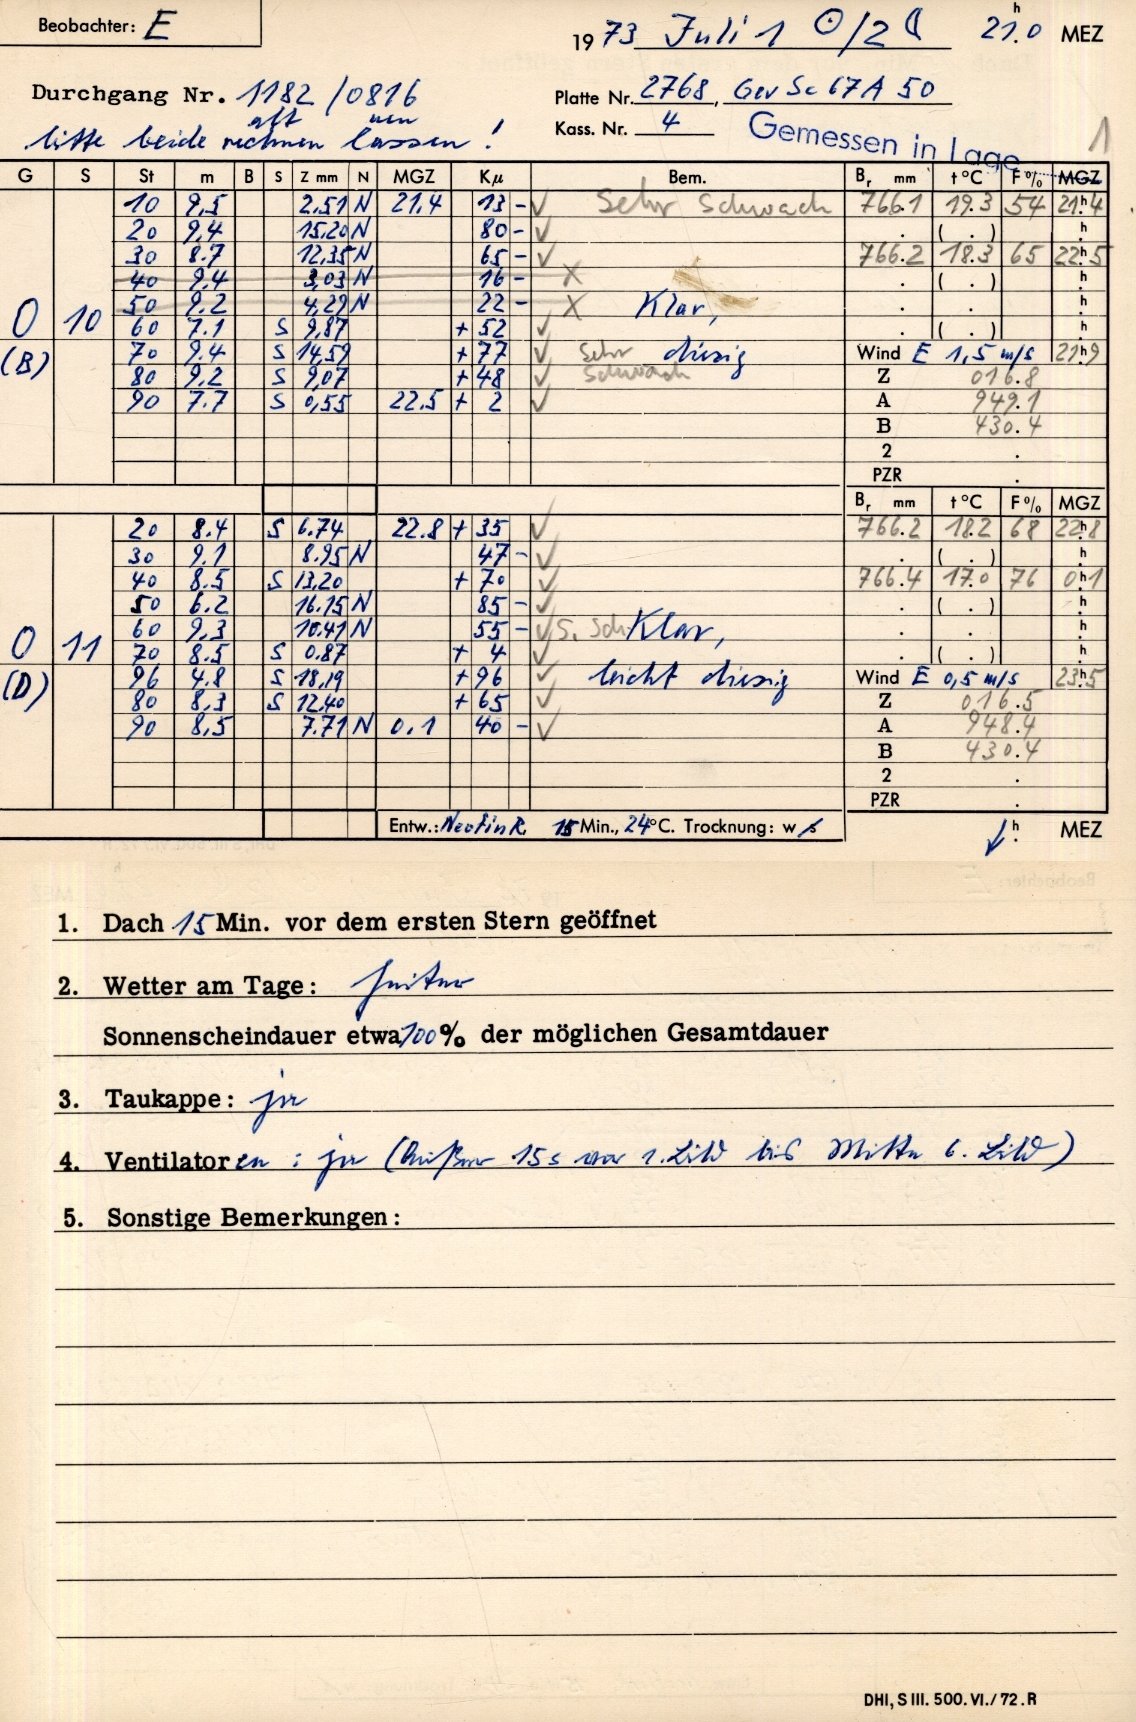 Beobachter: E
1973 Juli 1 ☉/2 ☾ 21.0 h MEZ
Durchgang Nr. 1182/0816
alt neu
Platte Nr. 2768, Gev Sc 67 A 50
bitte beide rechnen lassen!
Kass. Nr. 4 Gemessen in Lage 1
G S St m B S Z mm N MGZ Kμ Bem. Br mm t °C F % MGZ
10 9,5 2,51 N 21,4 13 - ✓ Sehr schwach 766.1 19.3 54 21h4
20 9,4 15,20 N 80 - ✓ . ( . ) h
30 8.7 12,35 N 65 - ✓ 766.2 18.3 65 22h5
40 9,4 3,03 N 16 - X . ( . ) h
50 9,2 4,29 N 22 - X Klar, . . h
O 10 60 7.1 S 9,87 + 52 ✓ . ( . ) h
(B) 70 9.4 S 14,59 + 77 ✓ Sehr diesig Wind E 1,5 m/s 21h9
80 9,2 S 9,07 + 48 ✓ schwach Z 016.8
90 7.7 S 0,55 22,5 + 2 ✓ A 949.1
B 430.4
2 .
PZR .
Br mm t °C F % MGZ
20 8.4 S 6.74 22.8 + 35 ✓ 766.2 18.2 68 22h8
30 9.1 8.95 N 47 - ✓ . ( . ) h
40 8.5 S 13,20 + 70 ✓ 766.4 17.0 76 0h1
50 6.2 16.15 N 85 - ✓ . ( . ) h
O 11 60 9,3 10.41 N 55 - ✓ s. sch Klar, . . h
70 8.5 S 0.87 + 4 ✓ . ( . ) h
(D) 96 4.8 S 18,19 + 96 ✓ leicht diesig Wind E 0,5 m/s 23h5
80 8,3 S 12,40 + 65 ✓ Z 016.5
90 8,5 7.71 N 0,1 40 - ✓ A 948.4
B 430.4
2 .
PZR .
Entw.: Neofin R. 15 Min., 24 °C. Trocknung: w/s h. MEZ
1. Dach 15 Min. vor dem ersten Stern geöffnet
2. Wetter am Tage: heiter
Sonnenscheindauer etwa 100 % der möglichen Gesamtdauer
3. Taukappe: ja
4. Ventilatoren: ja (Außer 15 s vor 1. Bild bis Mitte 6. Bild)
5. Sonstige Bemerkungen:
DHI, S III. 500. VI./72. R